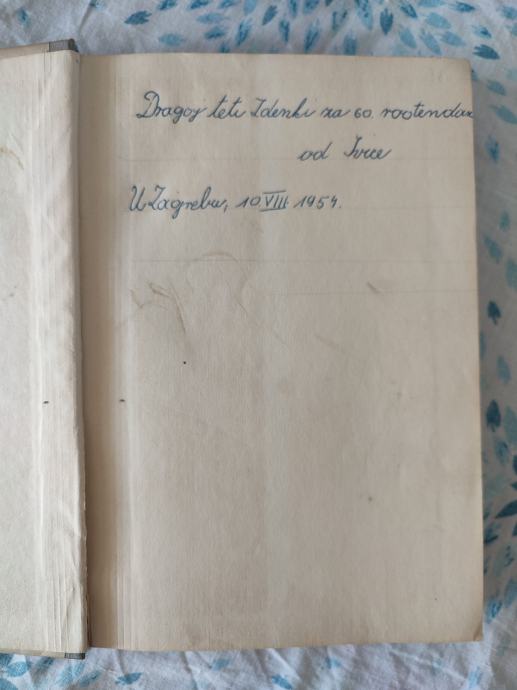 Dragoj teti Zdenki za 60. rođendan
od Ivice
U Zagrebu, 10 VIII. 1954.